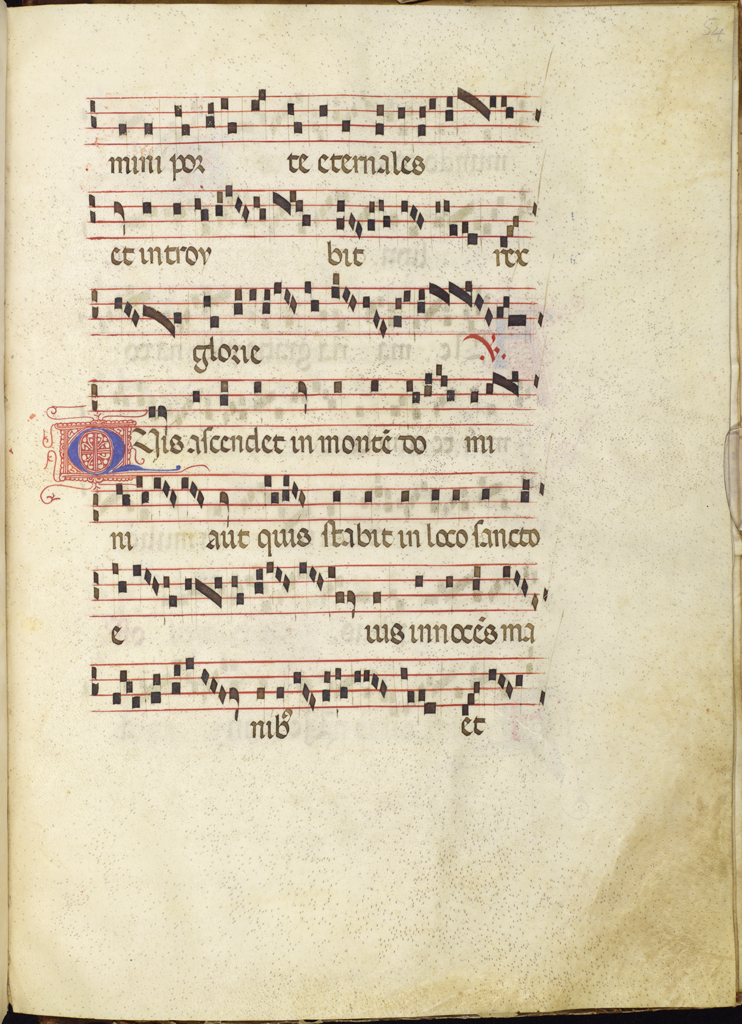 54
mini por te eternales
et introy bit rex
glorie ℣
Quis ascendet in montē do mi
ni aut quis stabit in loco sancto
e ius innocēs ma
nibꝰ et